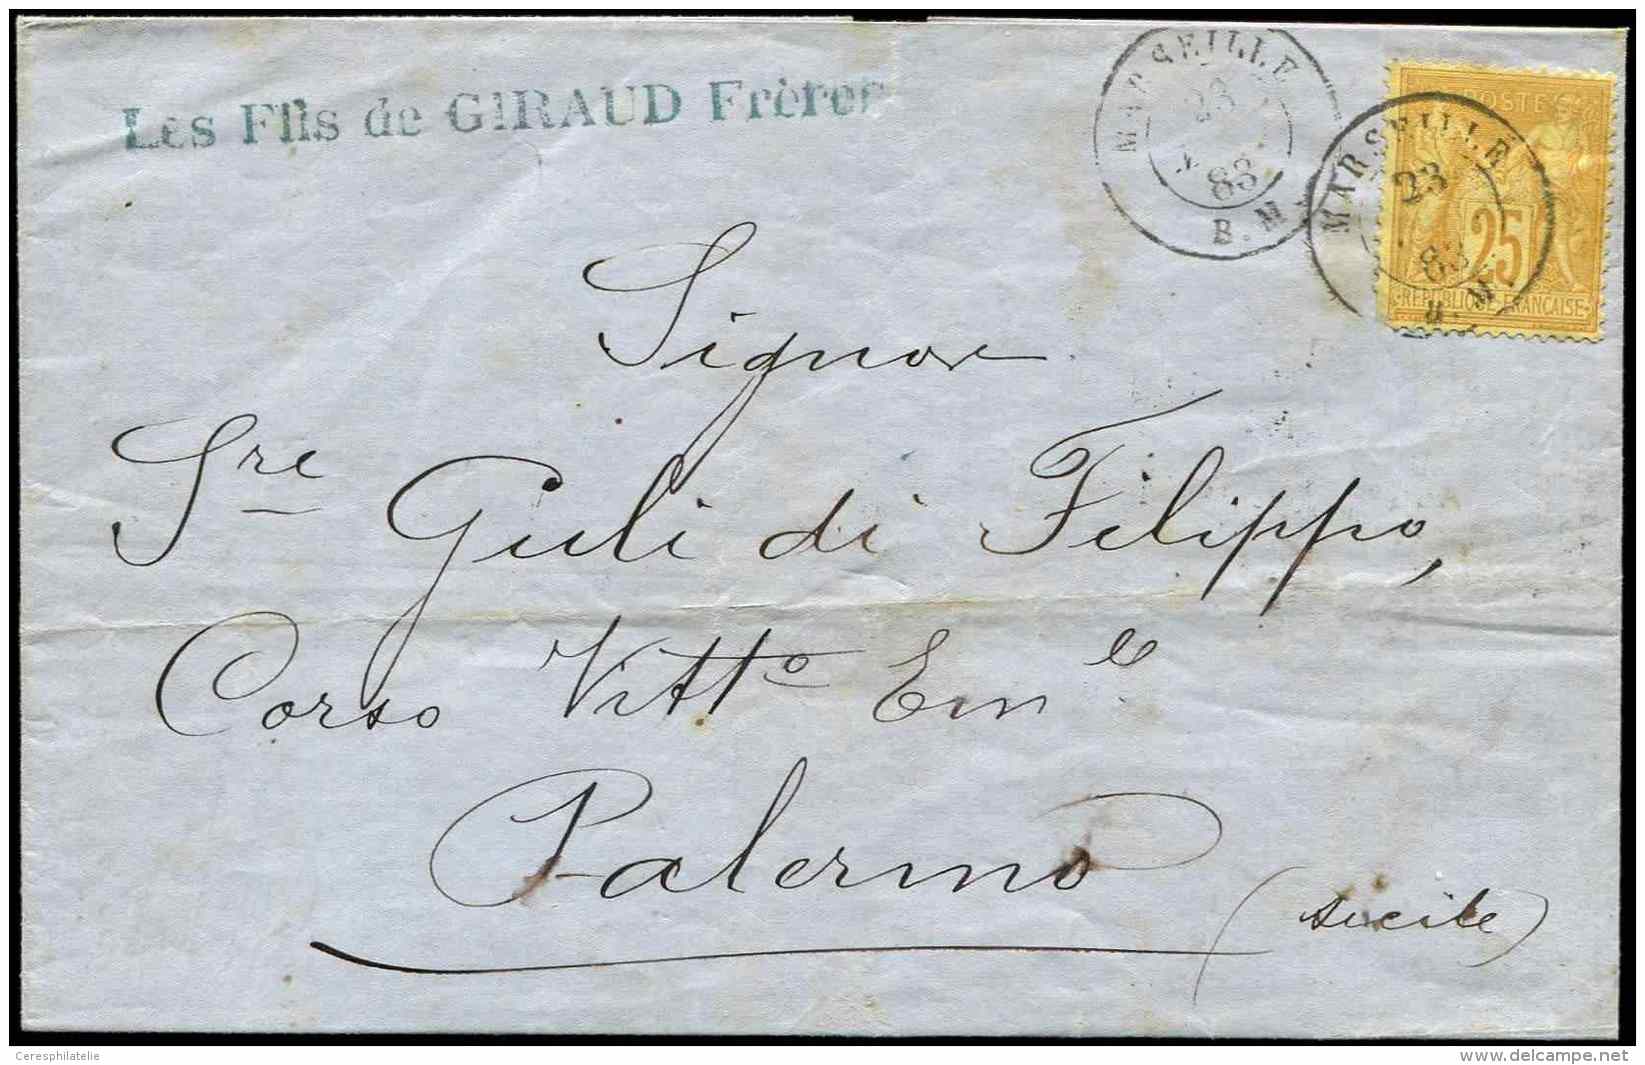 Les Fils de GIRAUD Frères
MARSEILLE
23
83
B.M
MARSEILLE
23
83
B.M
POSTE
25
REPUBLIQUE FRANCAISE
Signor
Sre Guli di Filippo,
Corso Vitto Emle
Palermo
(Sicile)
Ceresphilatelie
www.delcampe.net